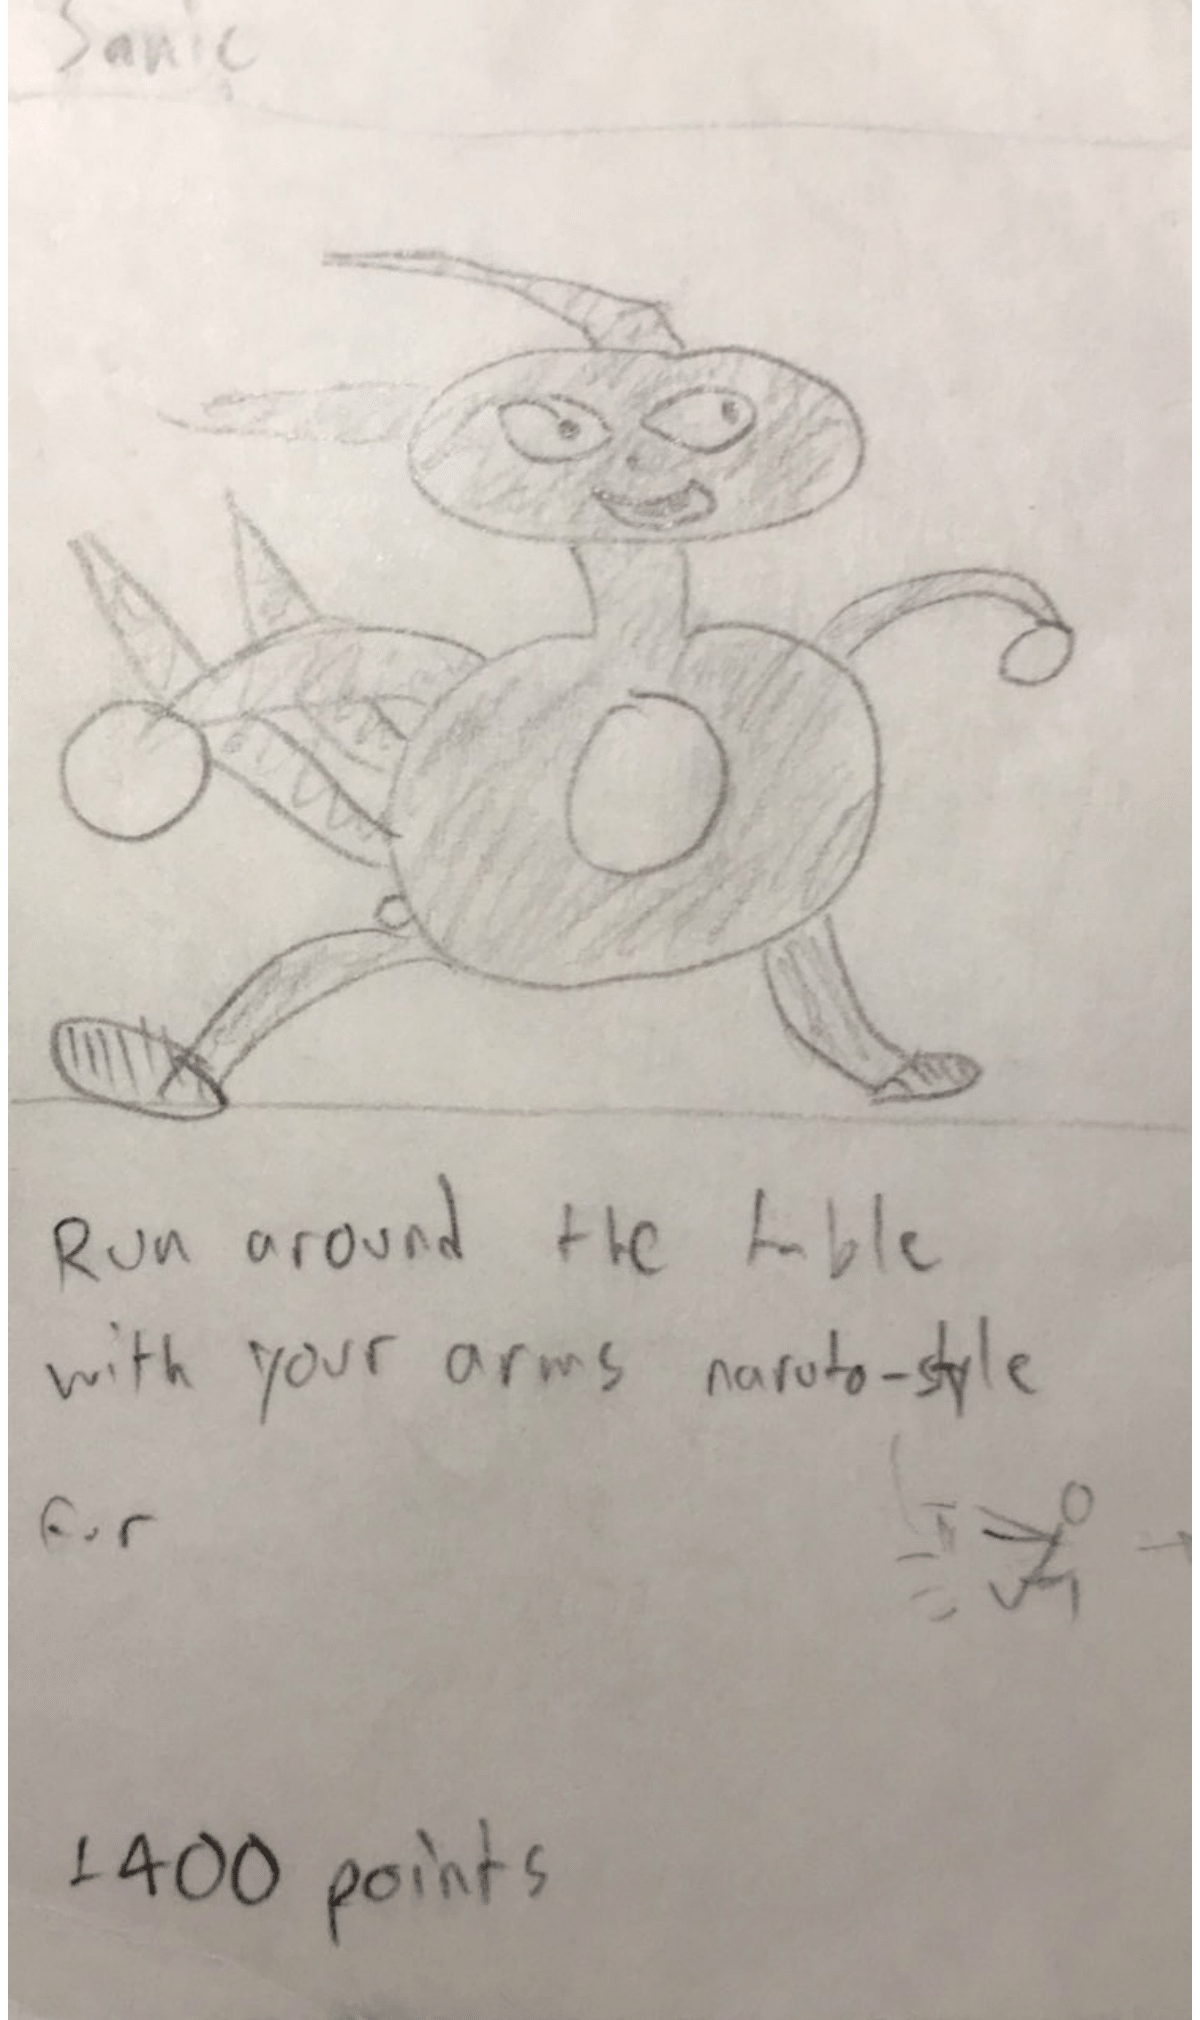 Sanic
Run around the table
with your arms naruto-style
For
1400 points